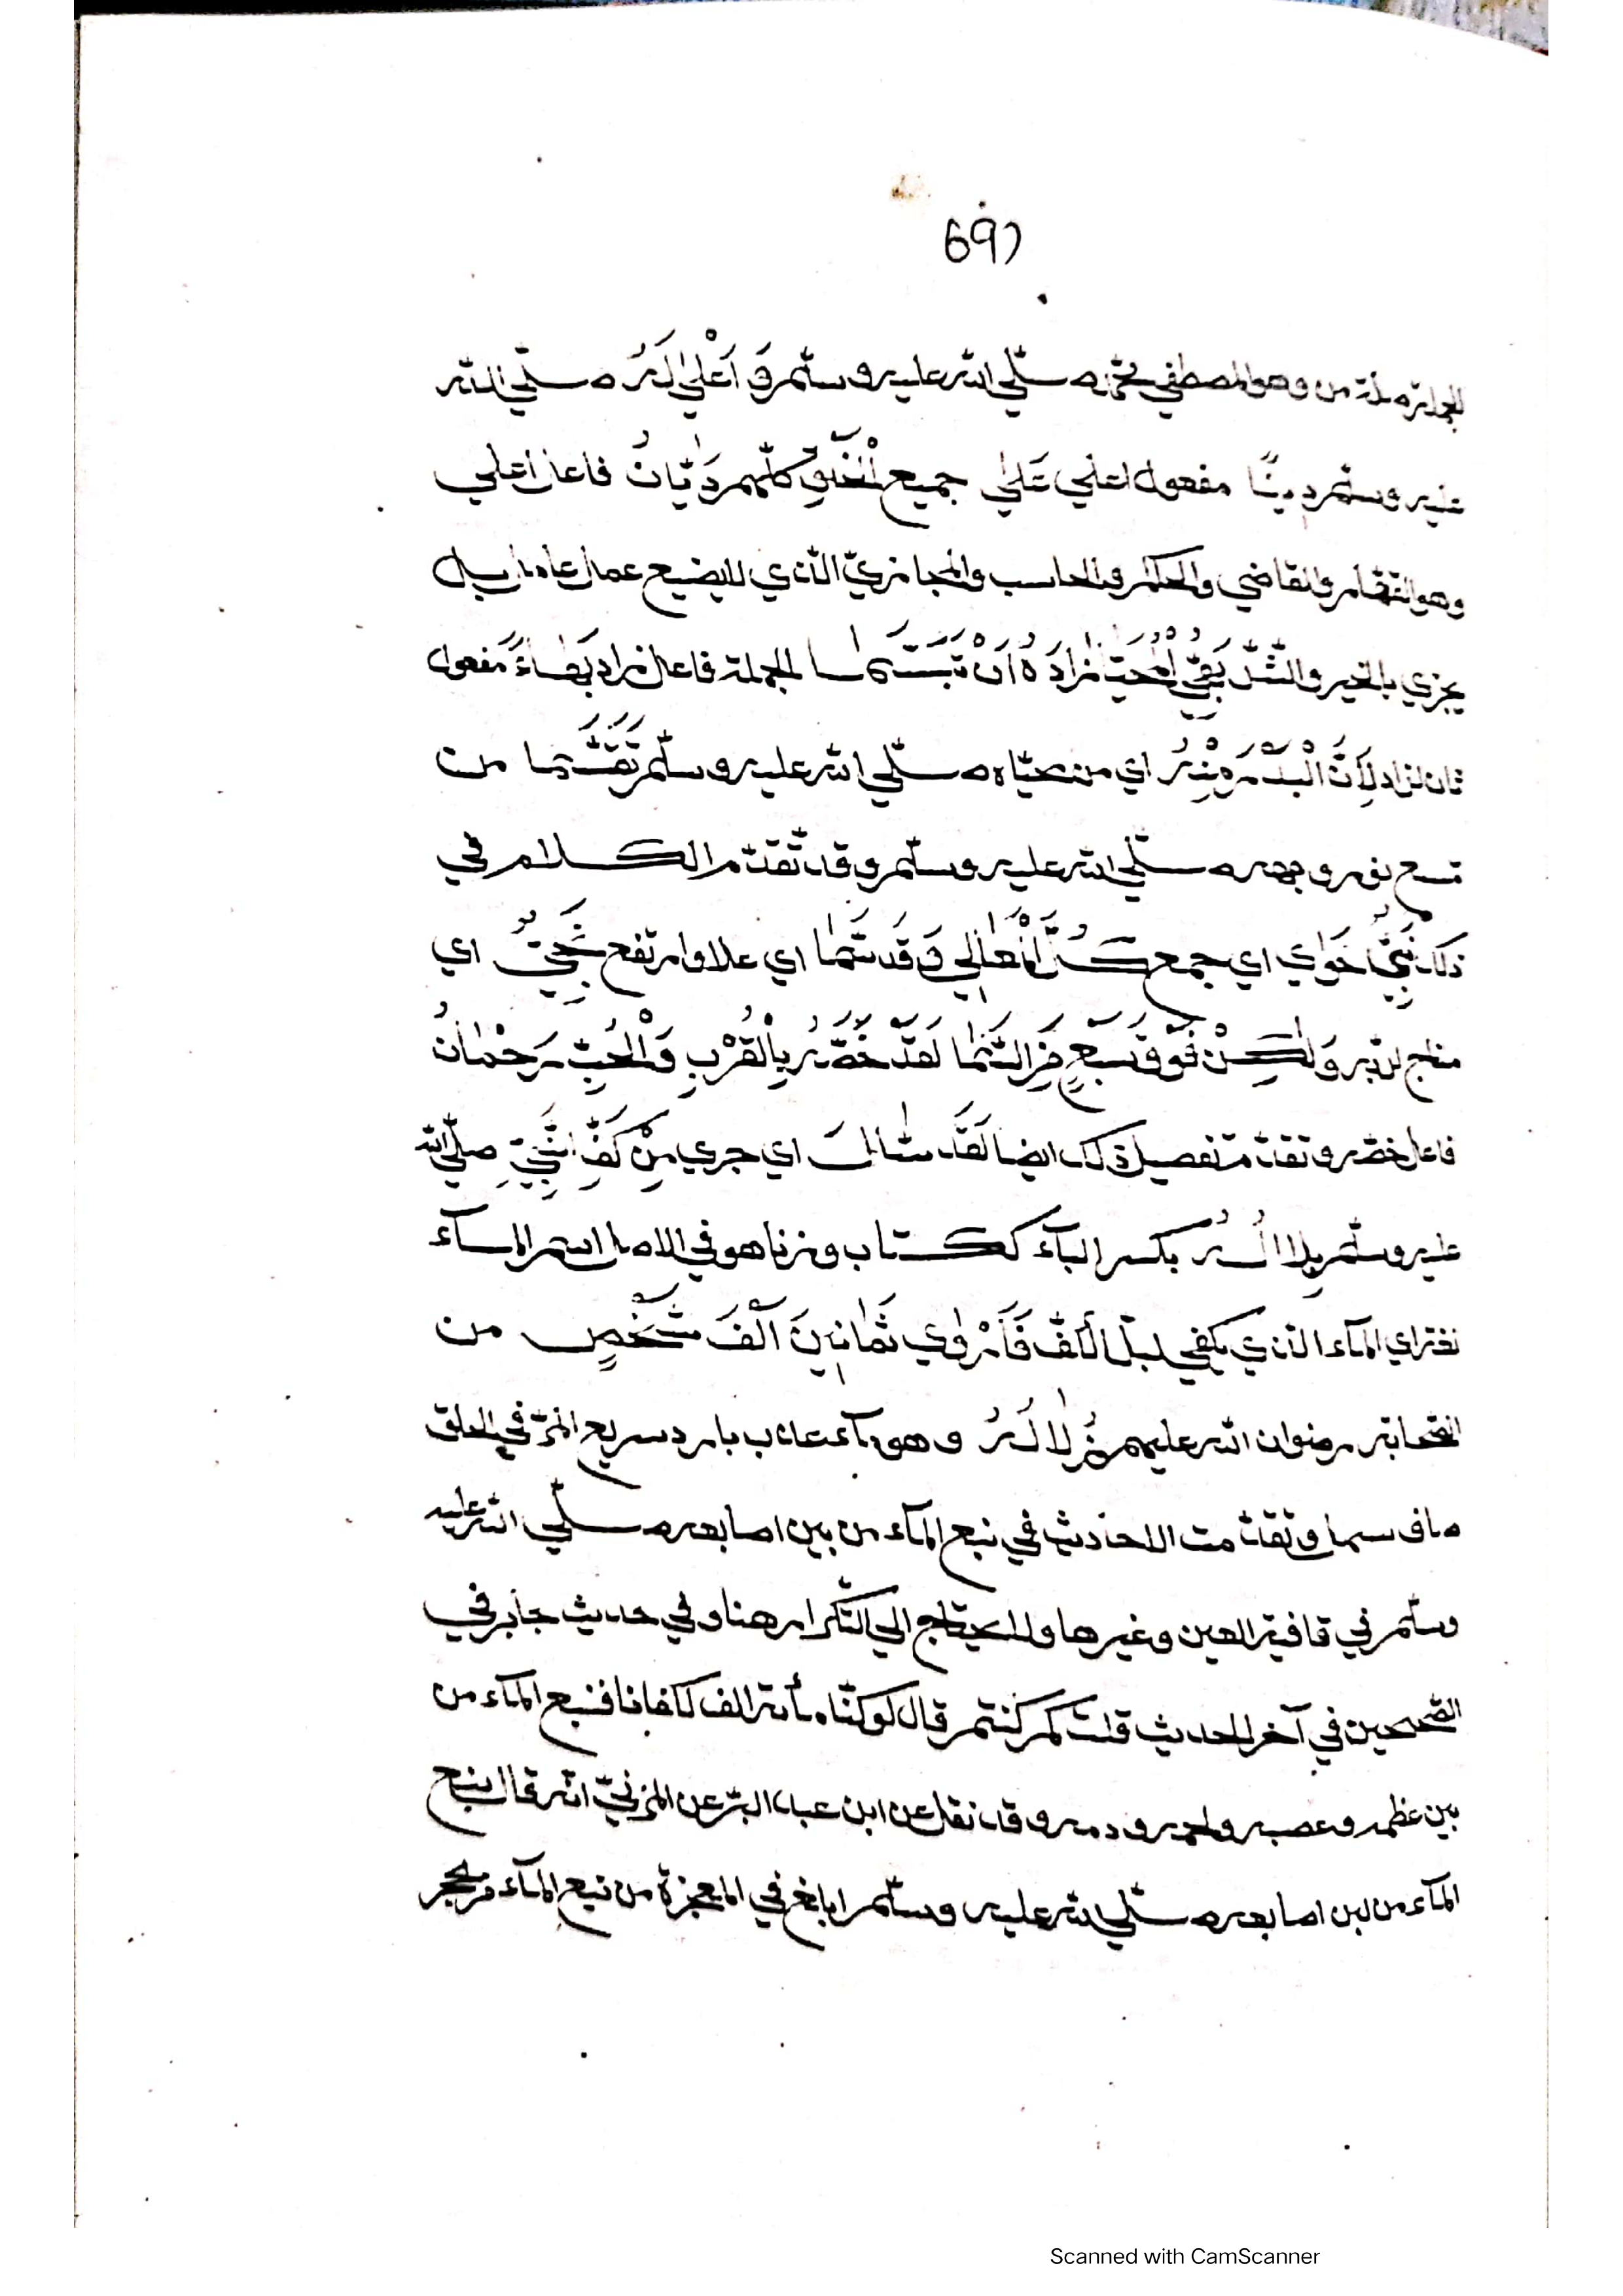 697
الجملة صلة من وهو المصطفي محمّد صلّي الله عليه وسلّم وَ اَعْلٰي لَهُ صلّي الله
عليه وسلّم دِينًا مفعول اعلي عَلٰي جميع الْخَلْقِ كلّهم دَيَّانُ فاعل اعلي
وهو القهّار والقاضي والحاكم والحاسب والمجازيّ الّذي لا يضيع عمل عامل بل
يجزي بالخير والشّر بَهِيُّ الْمُحَيَّا زَادَهُ اَنْ تَبَسَّمَا الجملة فاعل زاد بَهَاءً مفعول
ثان لزاد لِاَنَّ الْبَدْرَ مِنْهُ اي من محيّاه صلّي الله عليه وسلّم تَقَسَّمَا من
تسع نور وجهه صلّي الله عليه وسلّم وقد تقدّم الكلام في
ذلك نَبِيٌّ حَوٰي اي جمع كُلَّ الْمَعَالِي وَقَد سَمَا اي علا وارتفع نَجِيٌّ اي
مناج لربّه وَلٰكِنْ فَوْقَ سَبْعٍ مِنَ السَّمَا لَقَدْ خَصَّهُ بِالْقُرْبِ وَالْحُبِّ رَحْمٰانُ
فاعل خصّه وتقدّم تفصيل ذلك ايضا لَقَد سَالَ اي جري مِنْ كَفِّ النَّبِيِّ صلّي الله
عليه وسلّم بِلَالُهُ بكسر البآء ككتاب وزنا هو في الاصل اسم المآء
اي المآء الّذي يكفي لبلّ الكفّ فَاَرْوٰي ثَمَانِينَ اَلْفَ شَخْصٍ من
الصّحابة رضوان الله عليهم زُلَالُهُ وهو مآء عذب بارد سريع المرّ في الحلق
صاف سهل وتقدّمت الاحاديث في نبع المآء من بين اصابعه صلّي الله عليه
وسلّم في قافية العين وغيرها ولا يحتاج الي التّكرار هنا وفي حديث جابر في
الصّحيحين في آخر الحديث قلت كم كنتم قال لو كنّا مأئة الف لكفانا فنبع المآء من
بين عظمه وعصبه ولحمه ودمه وقد نقل عن ابن عبد البرّ عن المزنيّ انّه قال نبع
المآء من بين اصابعه صلّي الله عليه وسلّم ابلغ في المعجزة من نبع المآء من الحجر
Scanned with CamScanner